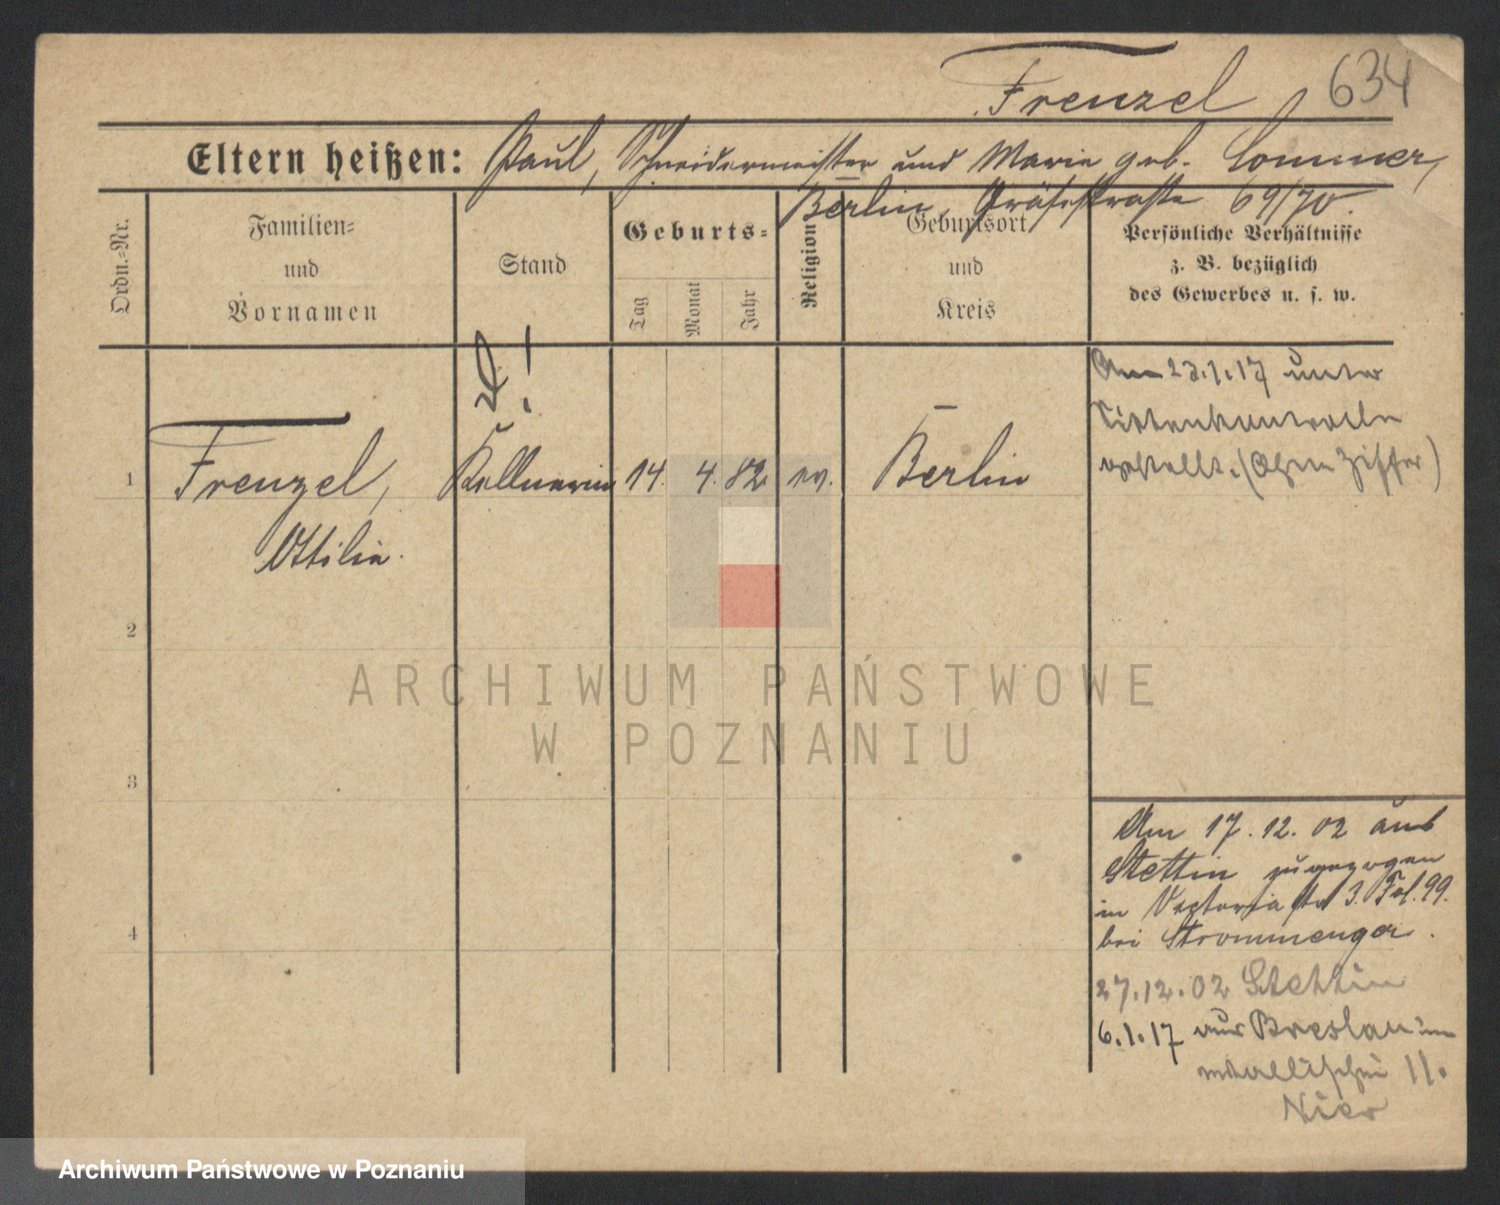 634
Frenzel
Eltern heißen: Paul, Schneidermeister und Marie geb. Lommer,
Berlin, Gräfestraße 69/70.
Ordn.-Nr.
Familien=
und
Vornamen
Stand
Geburts=
Tag
Monat
Jahr
Religion
Geburtsort
und
Kreis
Persönliche Verhältnisse
z. B. bezüglich
des Gewerbes u. s. w.
1
Frenzel,
Ottilie.
Kellnerin
14.
4.
82
ev.
Berlin
Am 23.1.17 unter
Sittenkontrolle
gestellt. (Ohne Ziffer)
2
3
4
Am 17.12.02 aus
Stettin zugezogen
in Victoria str 3. Fol. 99.
bei Strommenger.
27.12.02 Stettin
6.1.17 aus Breslau in
11.
ARCHIWUM PAŃSTWOWE
W POZNANIU
Archiwum Państwowe w Poznaniu